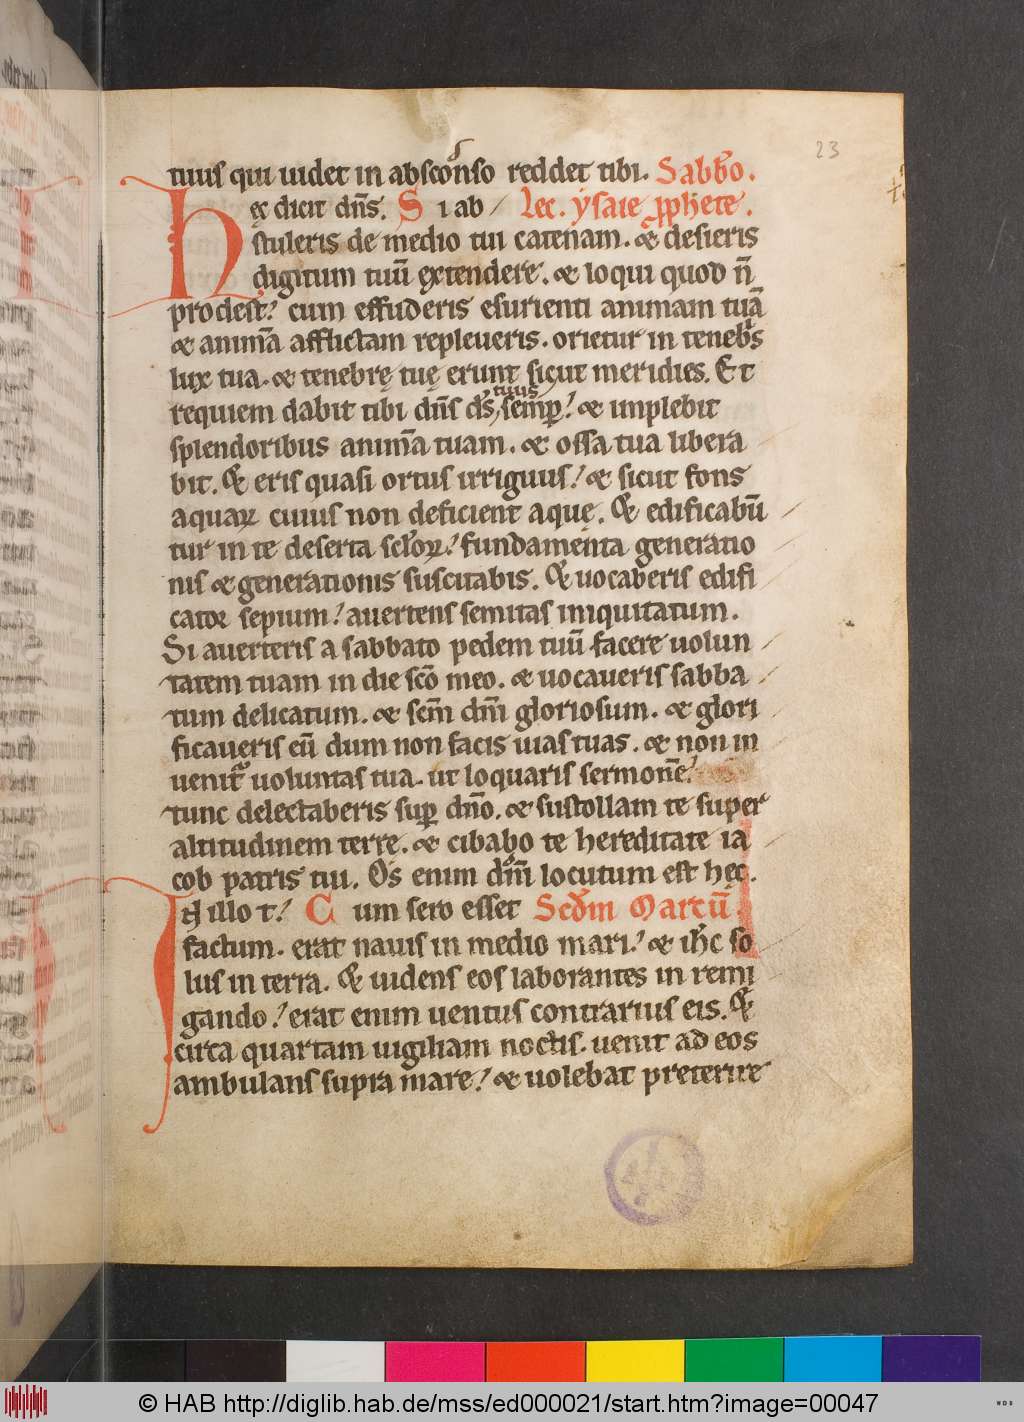 23
tuus qui uidet in absconso reddet tibi. Sabb̄o.
Hęc dicit dn̄s. Si ab/ Lec. ysaie ꝓphete.
stuleris de medio tui catenam. & desieris
digitum tuū extendere. & loqui quod n̄
prodest? cum effuderis esurienti animam tuā
& animā afflictam repleueris. orietur in tenebͥs
lux tua. & tenebrę tuę erunt sicut meridies. Et
requiem dabit tibi dn̄s ds̄ tuus semꝑ? & implebit
splendoribus animā tuam. & ossa tua libera
bit. & eris quasi ortus irriguus? & sicut fons
aquaꝝ cuius non deficient aquę. & edificabū
tur in te deserta scl̄oꝝ? fundamenta generatio
nis & generationis suscitabis. & uocaberis edifi
cator sepium? auertens semitas iniquitatum.
Si auerteris a sabbato pedem tuū facere uolun
tatem tuam in die scō meo. & uocaueris sabba
tum delicatum. & scm̄ dm̄i gloriosum. & glori
ficaueris eū dum non facis uias tuas. & non in
uenitᷓ uoluntas tua. ut loquaris sermonē?
tunc delectaberis suꝑ dn̄o. & sustollam te super
altitudinem terre. & cibabo te hereditate ia
cob patris tui. Os enim dm̄i locutum est hęc.
In illo t? Cum sero esset Scd̄m Marcū.
factum. erat nauis in medio mari? & ih̄c so
lus in terra. & uidens eos laborantes in remi
gando? erat enim uentus contrarius eis. &
circa quartam uigiliam noctis. uenit ad eos
ambulans supra mare? & uolebat preterire
© HAB http://diglib.hab.de/mss/ed000021/start.htm?image=00047